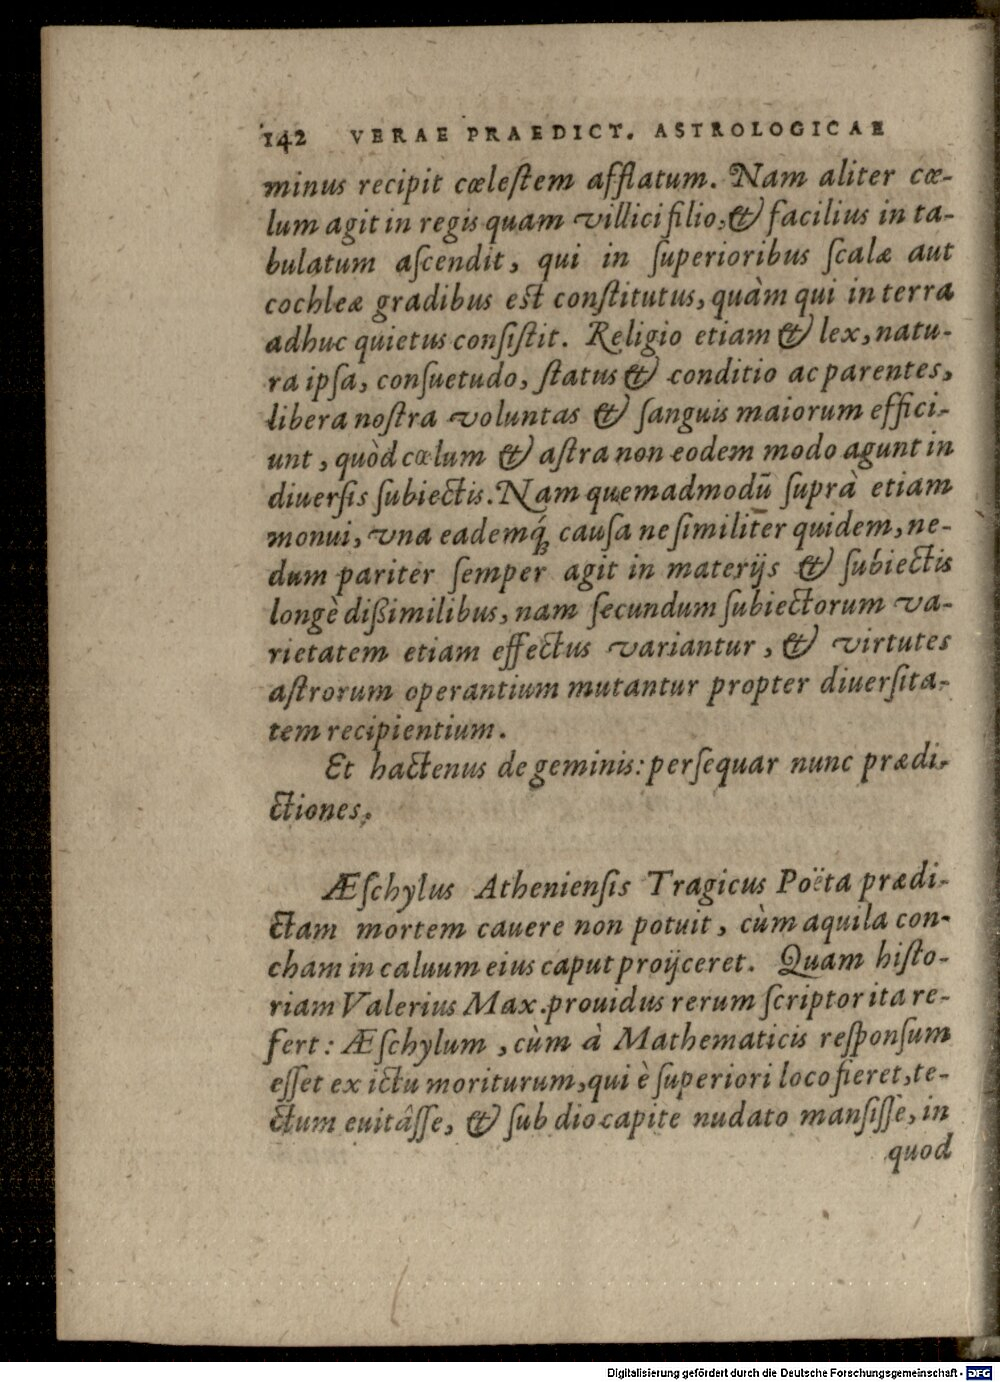 142 VERAE PRAEDICT. ASTROLOGICAE
minus recipit cœleſtem afflatum. Nam aliter cœ-
lum agit in regis quam villici filio, & facilius in ta-
bulatum aſcendit, qui in ſuperioribus ſcalæ aut
cochleæ gradibus eſt conſtitutus, quàm qui in terra
adhuc quietus conſiſtit. Religio etiam & lex, natu-
ra ipſa, conſuetudo, ſtatus & conditio ac parentes,
libera noſtra voluntas & ſanguis maiorum effici-
unt, quòd cœlum & aſtra non eodem modo agunt in
diuerſis ſubiectis. Nam quemadmodū ſuprà etiam
monui, vna eademq́; cauſa ne ſimiliter quidem, ne-
dum pariter ſemper agit in materijs & ſubiectis
longè dißimilibus, nam ſecundum ſubiectorum va-
rietatem etiam effectus variantur, & virtutes
aſtrorum operantium mutantur propter diuerſita-
tem recipientium.
Et hactenus de geminis: perſequar nunc prædi-
ctiones.
Æſchylus Athenienſis Tragicus Poëta prædi-
ctam mortem cauere non potuit, cùm aquila con-
cham in caluum eius caput proijceret. Quam hiſto-
riam Valerius Max. prouidus rerum ſcriptor ita re-
fert: Æſchylum, cùm à Mathematicis reſponſum
eſſet ex ictu moriturum, qui è ſuperiori loco fieret, te-
ctum euitâſſe, & ſub dio capite nudato manſiſſe, in
quod
Digitalisierung gefördert durch die Deutsche Forschungsgemeinschaft - DFG